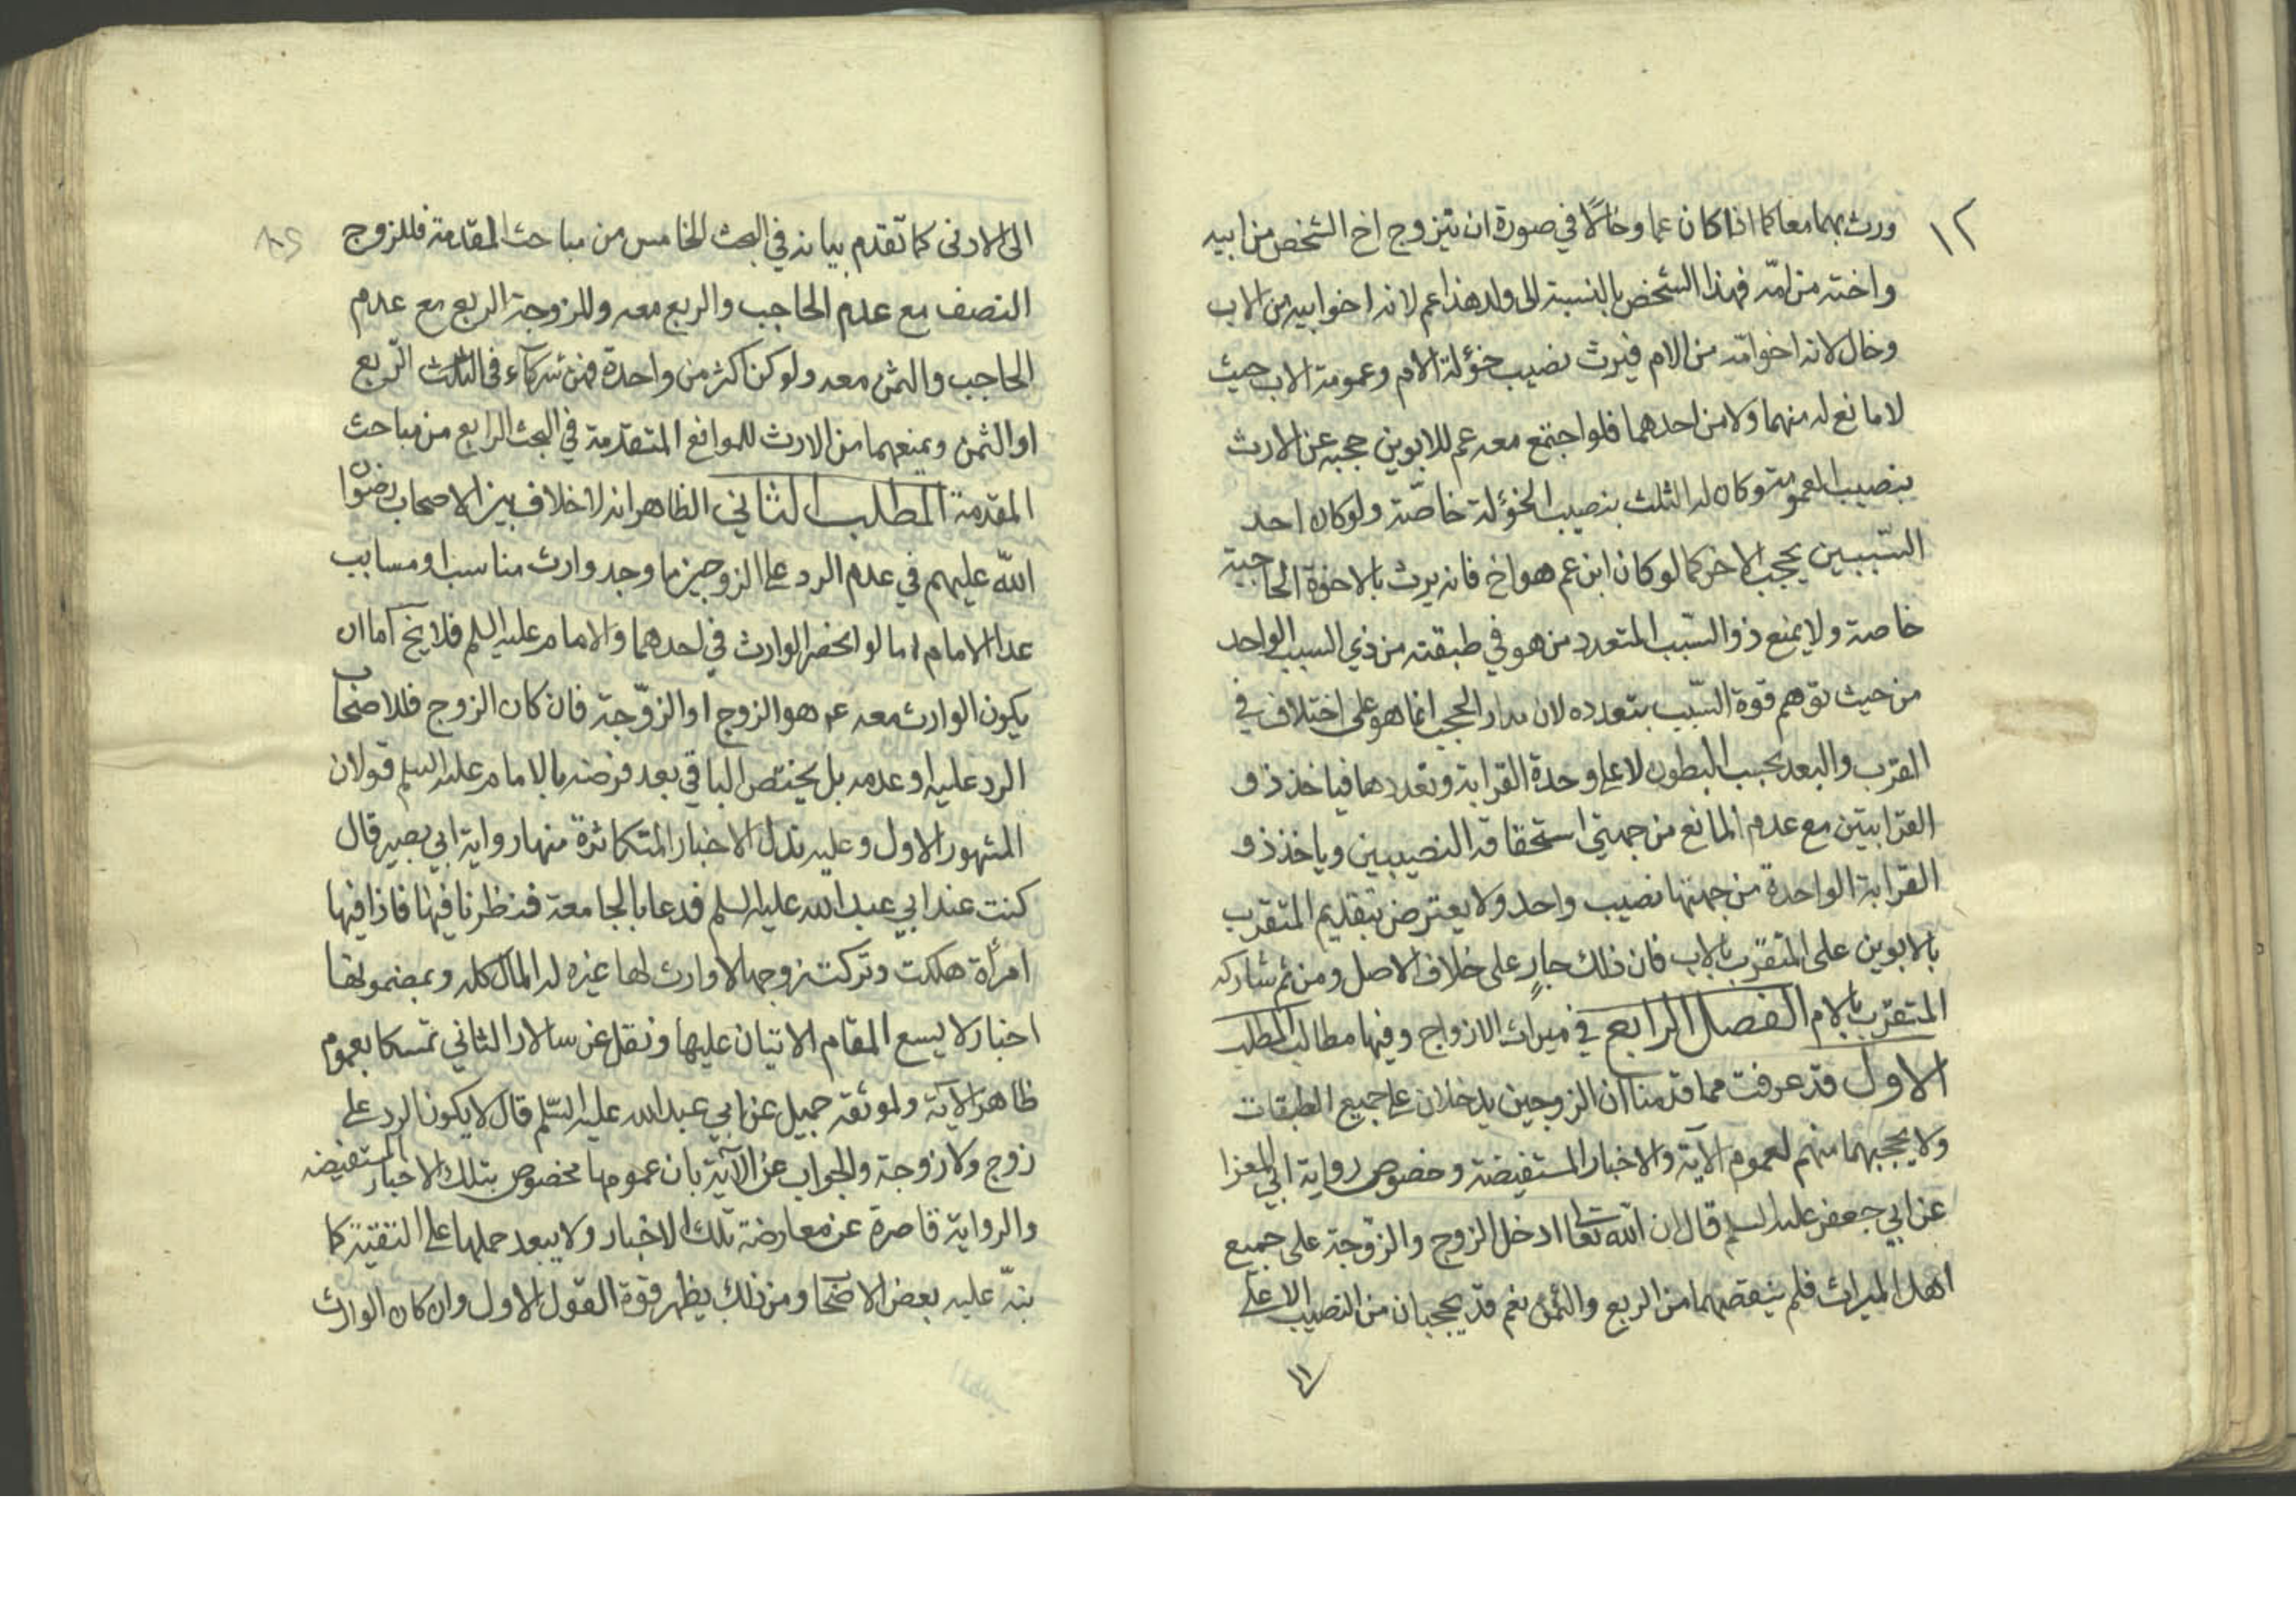 ١٢
ورث بهما معا كما اذا كان عما وخالًا في صورة ان يتزوج اخ الشخص من ابيه
واخته من امّه فهذا الشخص بالنسبة الى ولد هذا عم لانه اخوا بيه من الاب
وخال لانه اخوامّه من الام فيرث نصيب خؤلة الام وعمومة الاب حيث
لا مانع له منهما ولا من احدهما فلو اجتمع معه عم للابوين حجبه عن الارث
بنصيب العمومة وكان له الثلث بنصيب الخؤلة خاصّة ولو كان احد
السّببين يحجب الاخر كما لو كان ابن عم هو اخ فانه يرث بالاخوة الحاجبة
خاصة ولا يمنع ذو السّبب المتعدد من هو في طبقته من ذي السبب الواحد
من حيث توهم قوة السّبب بتعدده لان مدار الحجب انما هو على اختلاف في
القرب والبعد بحسب البطون لا على وحدة القرابة وتعددها فياخذ ذو
القرابتين مع عدم المانع من جهتي استحقاقه النصيبين وياخذ ذو
القرابة الواحدة من جهتها نصيب واحد ولا يعترض بتقديم المتقرب
بالابوين على المتقرّب بالاب فان ذلك جارٍ على خلاف الاصل ومن ثم شاركه
المتقرّب بالام الفصل الرابع في ميراث الازواج وفيها مطالب المطلب
الاول قد عرفت مما قدمنا ان الزوجين يدخلان على جميع الطبقات
ولا يحجبهما منهم لعموم الآية والاخبار المستفيضة وخصوص رواية ابي المعزا
عن ابي جعفر عليه السلم قال ان الله تعالى ادخل الزوج والزوجة على جميع
اهل الميراث فلم ينقصهما من الربع والثمن نعم قد يحجبان من النصيب الاعلى
١١
٨٢
الى الادنى كما تقدم بيانه في البحث الخامس من مباحث المقدمة فللزوج
النصف مع عدم الحاجب والربع معه وللزوجة الربع مع عدم
الحاجب والثمن معه ولو كن اكثر من واحدة فهن شركآء في الثلث الرّبع
او الثمن ويمنعهما من الارث للموانع المتقدمة في البحث الرابع من مباحث
المقدمة المطلب الثاني الظاهر انه لا خلاف بين الاصحاب رضوان
الله عليهم في عدم الرد على الزوجين ما وجد وارث مناسب او مسابب
عدا الامام اما لو انحصر الوارث في احدهما والامام عليه السلم فلا يخ اما ان
يكون الوارث معه عم هو الزوج او الزوّجة فان كان الزوج فللاصحاب
الرد عليه او عدمه بل يختص الباقي بعد فرضه بالامام عليه السلم قولان
المشهور الاول وعليه تدل الاخبار المتكاثرة منها رواية ابي بصير قال
كنت عند ابي عبد الله عليه السلم فدعا بالجامعة فنظرنا فيها فاذا فيها
امرأة هلكت وتركت زوجها لا وارث لها غيره له المال كله وبمضمونها
اخبار لا يسع المقام الاتيان عليها ونقل عن سالار الثاني تمسكا بعموم
ظاهر الآية ولموثقة جميل عن ابي عبد الله عليه السّلم قال لا يكون الرد على
زوج ولا زوجة والجواب عن الآية بان عمومها مخصوص بتلك الاخبار المستفيضه
والرواية قاصرة عن معارضة تلك الاخبار ولا يبعد حملها على التقيّة كما
نبّه عليه بعض الاصحاب ومن ذلك يظهر قوة القول الاول وان كان الوارث